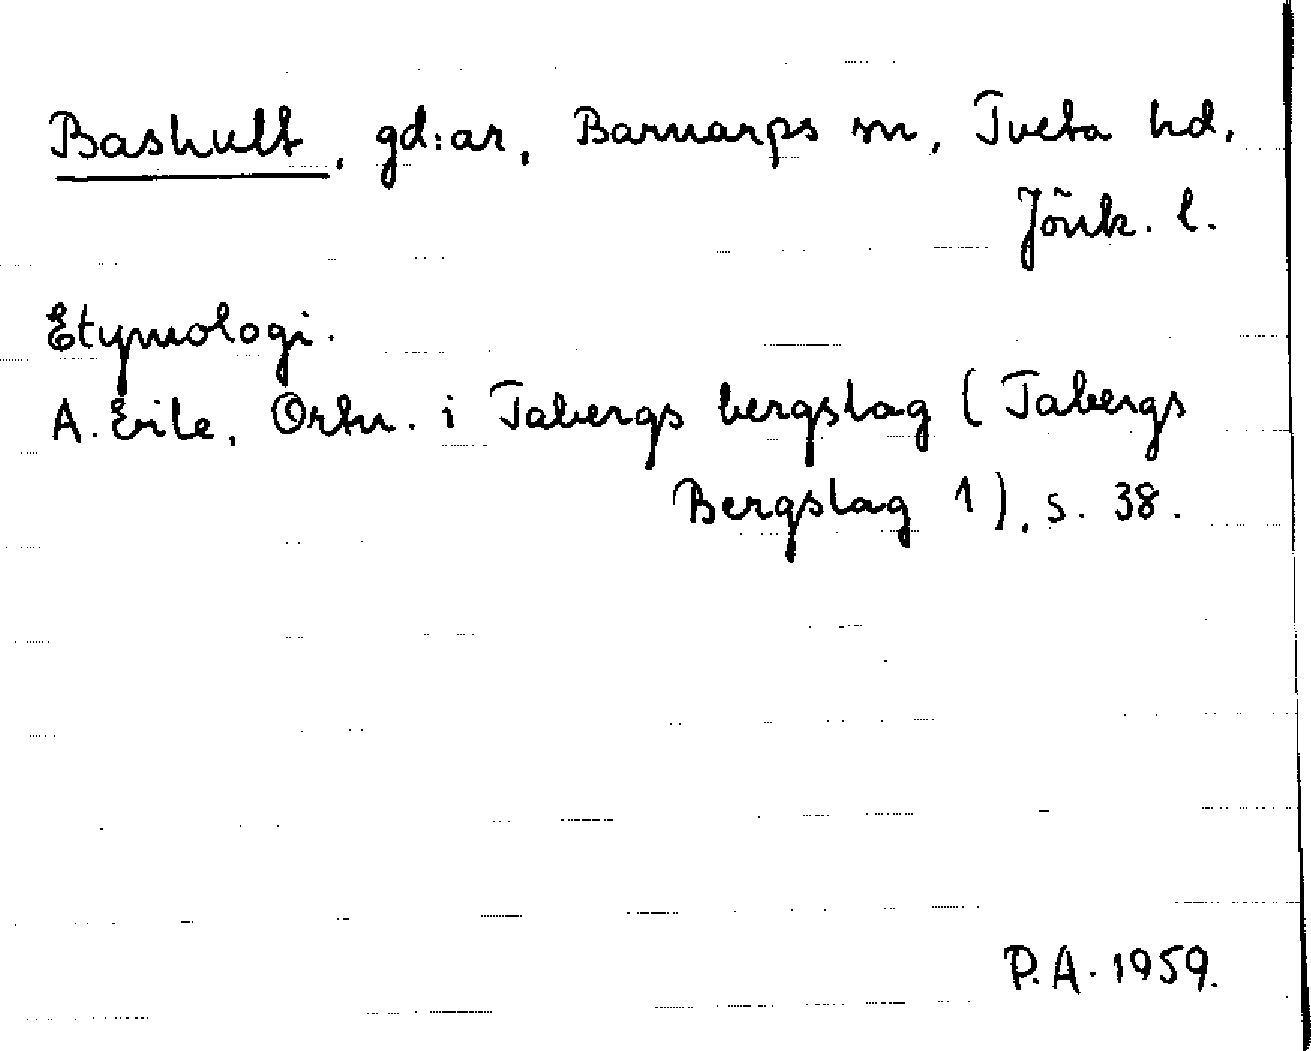 Bashult, gd:ar, Barnarps sn, Tveta hd,
Jönk. l.
Etymologi.
A. Ejle, Ortn. i Tabergs bergslag (Tabergs
Bergslag 1), s. 38.
P.A. 1959.